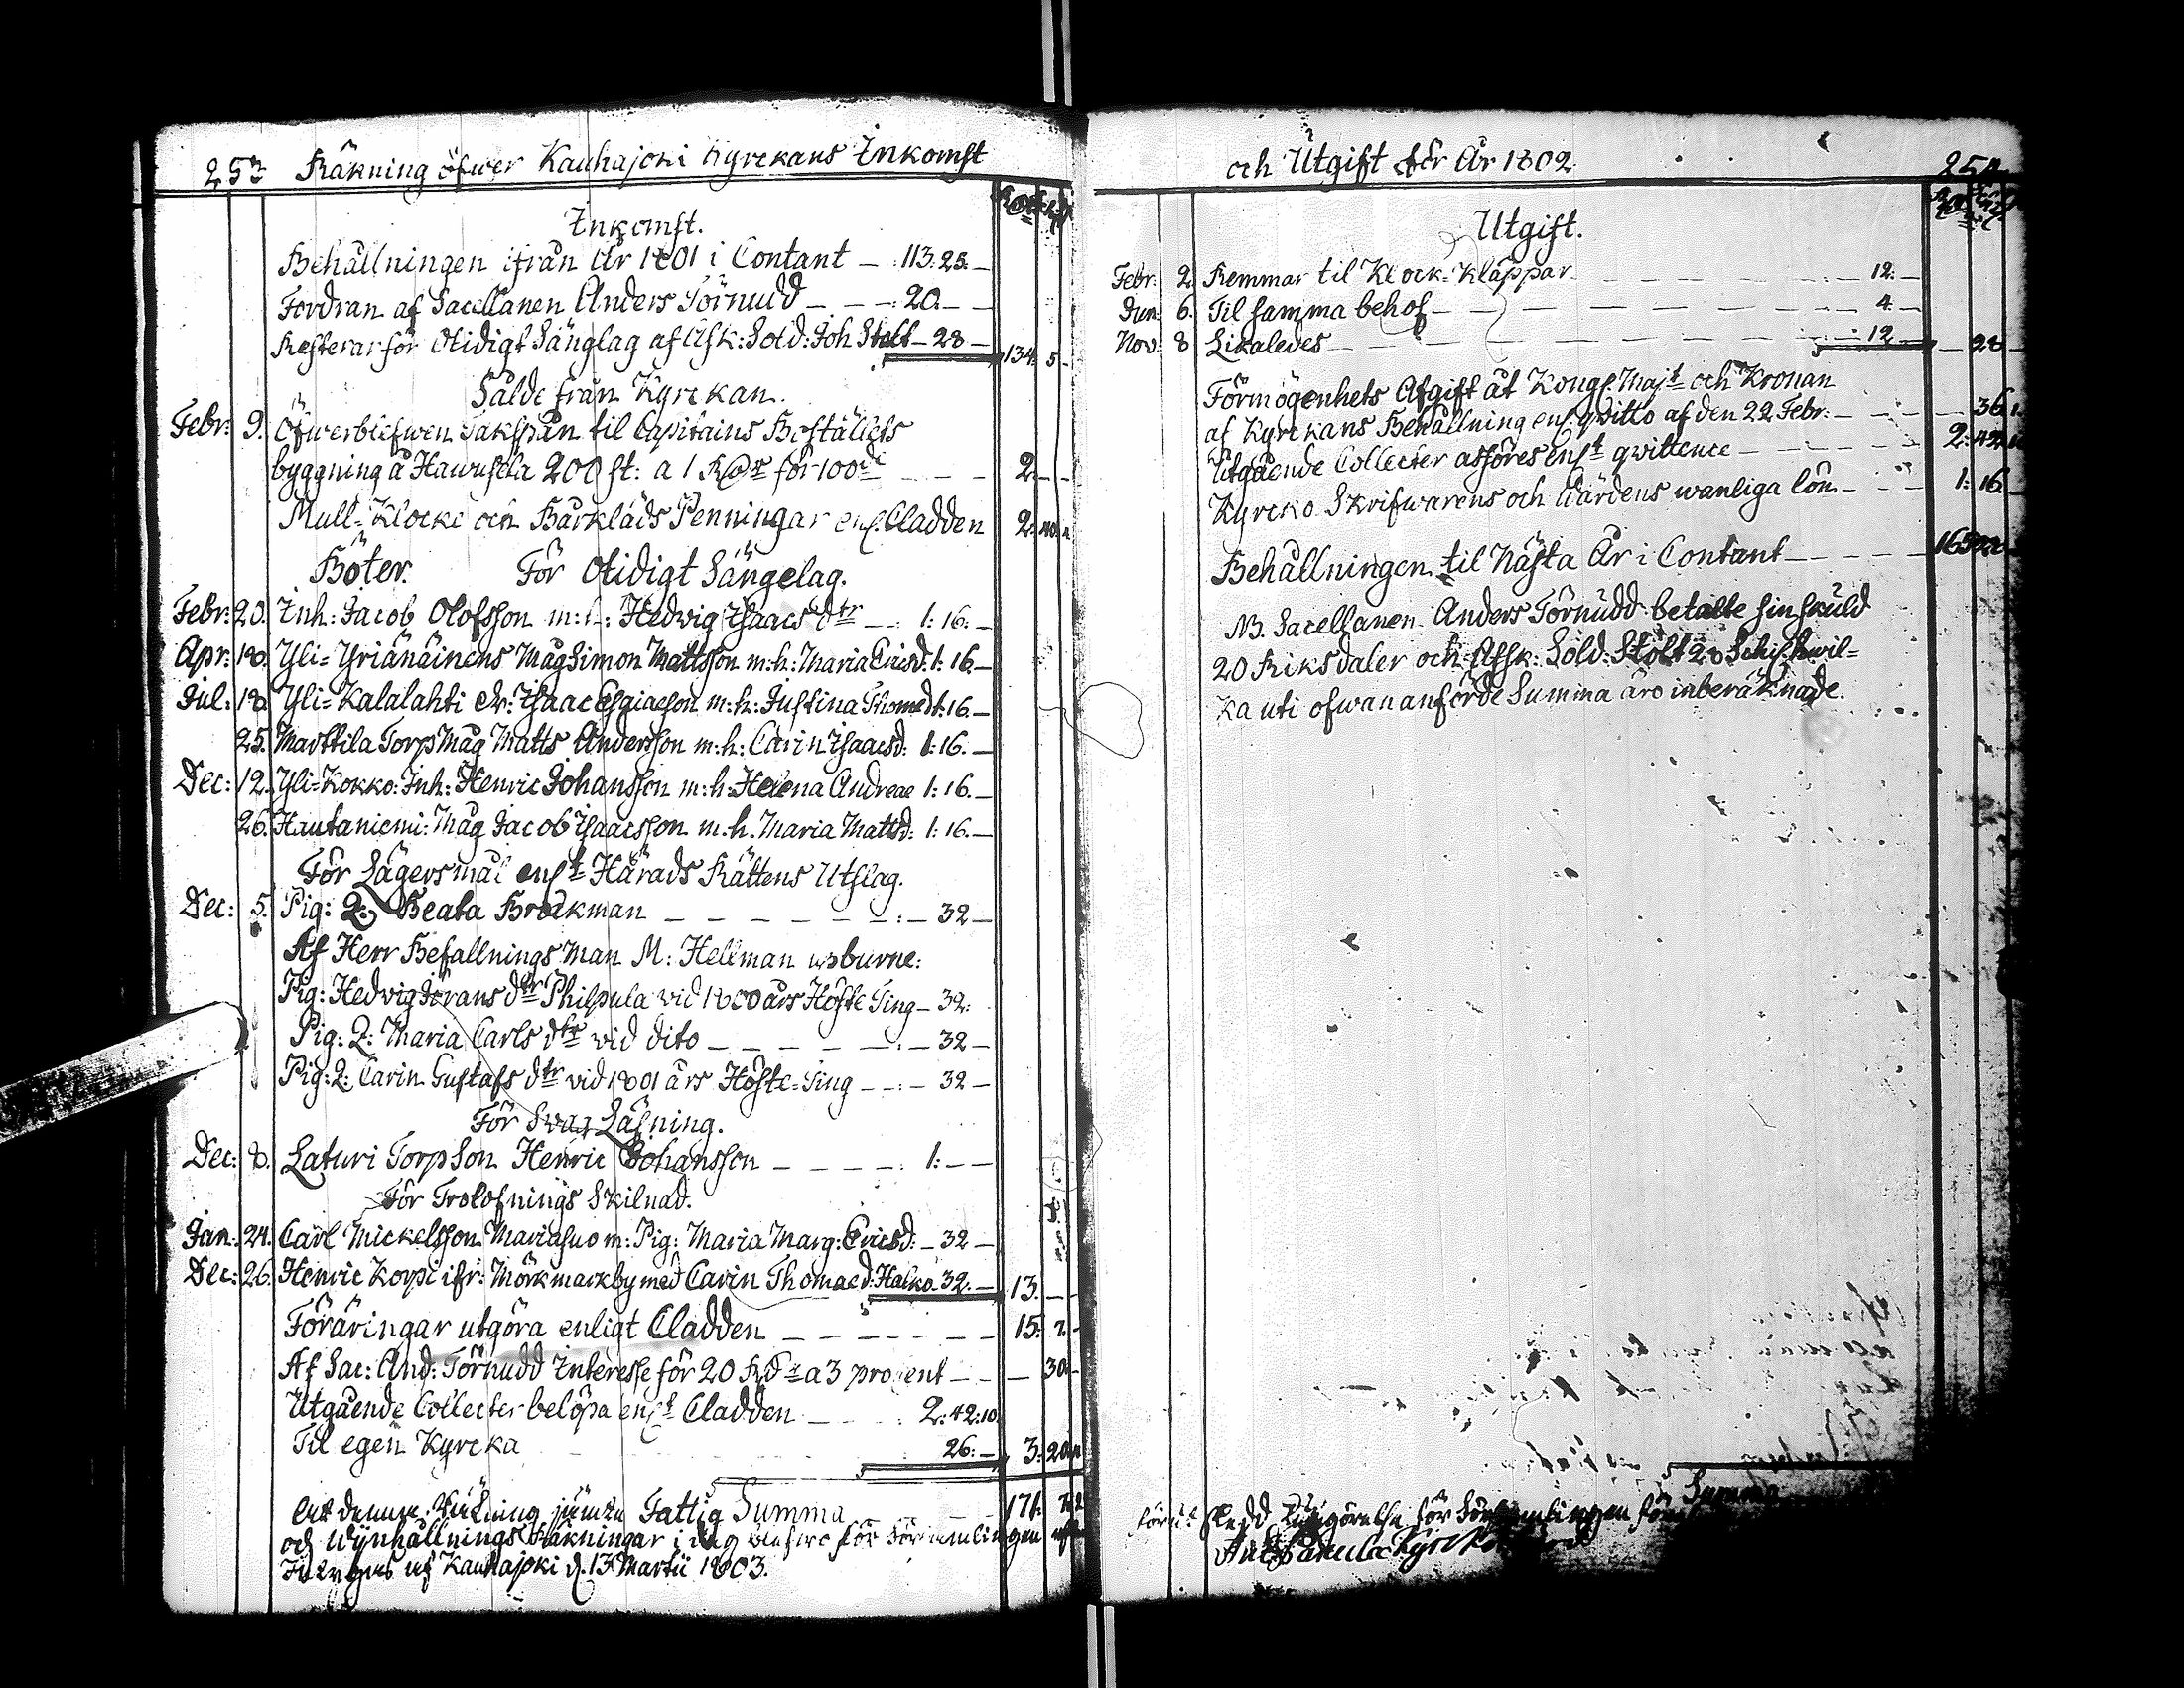 253 Räkning öfwer Kauhajoki Kyrckans Inkomst
Inkomst.
Behållningen ifrån År 1801 i Contant — : 113: 25: —
Fordran af Sacellanen Anders Törnudd — — —: 20. — —
Resterar för Otidigt Sänglag af Afsk: Sold: Joh Stolt — 28 — 134. 5 —
Sålde från Kyrckan.
Febr: 9. Öfwerblefwen Takspån til Capitains Boställets
byggning å Hawusela 200 st: a 1 Rdr för 100de — — — 2. — —
Mull-Klocke och Bårkläds Penningar enl. Cladden 2. 40.
Böter. För Otidigt Sängelag.
Febr: 20. Inh: Jacob Olofsson m: h: Hedwig Isaacs dtr — : 1: 16. —
Apr: 18. Yli-Yriänäinens Måg Simon Mattsson m: h: Maria Ericsd: 1: 16. —
Jul: 18. Yli-Kalalahti Dr: Isaac Esaiaeson m: h: Justina Thomed: 1: 16. —
25. Marttila Torp Måg Matts Andersson m: h: Carin Isaacsd: 1: 16. —
Dec: 12. Yli-Kokko: Inh: Henric Johansson m: h: Helena Andreae 1: 16. —
26. Hautaniemi: Måg Jacob Isaacsson m. h. Maria Mattsd: 1: 16. —
För Lägersmål enl:t Härads Rättens Utslag.
Dec: 5. Pig: Q: Beata Brockman — — — — — — — : — 32 —
Af Herr Befallnings Man M: Hellman upburne:
Pig: Hedwig Jörans dtr Philpula vid 1800 års Höste Ting — 32:
Pig: Q: Maria Carls dtr vid dito — — — — — : — 32 —
Pig: Q: Carin Gustafs dtr vid 1801 års Höste-Ting — — : — 32 —
För Swag Läsning.
Dec: 8. Laturi Torp Son Henric Johansson — — — — : 1: — —
För Trolofnings Skilnad.
Jan: 24. Carl Mickelsson Mariasuo m: Pig: Maria Marg: Ericsd: — 32 —
Dec: 26. Henric Korpi ifr: Mörkmarkby med Carin Thomaed: Halko 32: — 13. — —
Föräringar utgöra enligt Cladden — — — — — — — 15: 7. —
Af Sac: And: Törnudd Interesse för 20 Rdr a 3 procent — — — 30 —
Utgående Collecter belöpa enl:t Cladden — — : 2: 42: 10.
Til egen Kyrcka 26: — 3: 20
Summa 171.
Att denna Räkning jämte Fattig
och Wijnhållnings Räkningar i dag för Församlingen
af Kauhajoki d. 13 Martii 1803.
och Utgift för År 1802 254
Utgift.
Febr: 2. Remmar til Klock-Kläppar — — — — — 12: —
Jun: 6. Til samma behof — — — — — — 4. —
Nov: 8 Likaledes — — — — — — 12 — — 28 —
Förmögenhets Afgift åt Kongl. Maj:t och Kronan
af Kyrckans Behållning enl. qvitto af den 22 Febr: — — — 36
Utgående Collecter afföres enl:t qwittence — — — 2: 42
Kyrcko Skrifwarens och Wärdens wanliga lön — — — 1: 16. —
Behållningen til Nästa År i Contant — — — — — 165
NB. Sacellanen Anders Törnudd betalte sin skuld
20 Riksdaler och Afsk: Sold: Stolt 28 Sch: hwil-
ka uti ofwananförde Summa äro inberäknade.
Summa
skedd Redogörelse för Församlingen